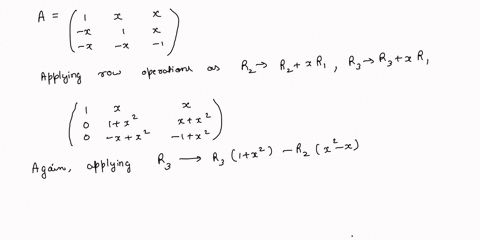 A = ( 1 x x
-x 1 x
-x -x -1 )
Applying row operations as R₂ → R₂ + x R₁ , R₃ → R₃ + x R₁
( 1 x x
0 1+x² x+x²
0 -x+x² -1+x² )
Again, applying R₃ → R₃ (1+x²) - R₂ (x²-x)